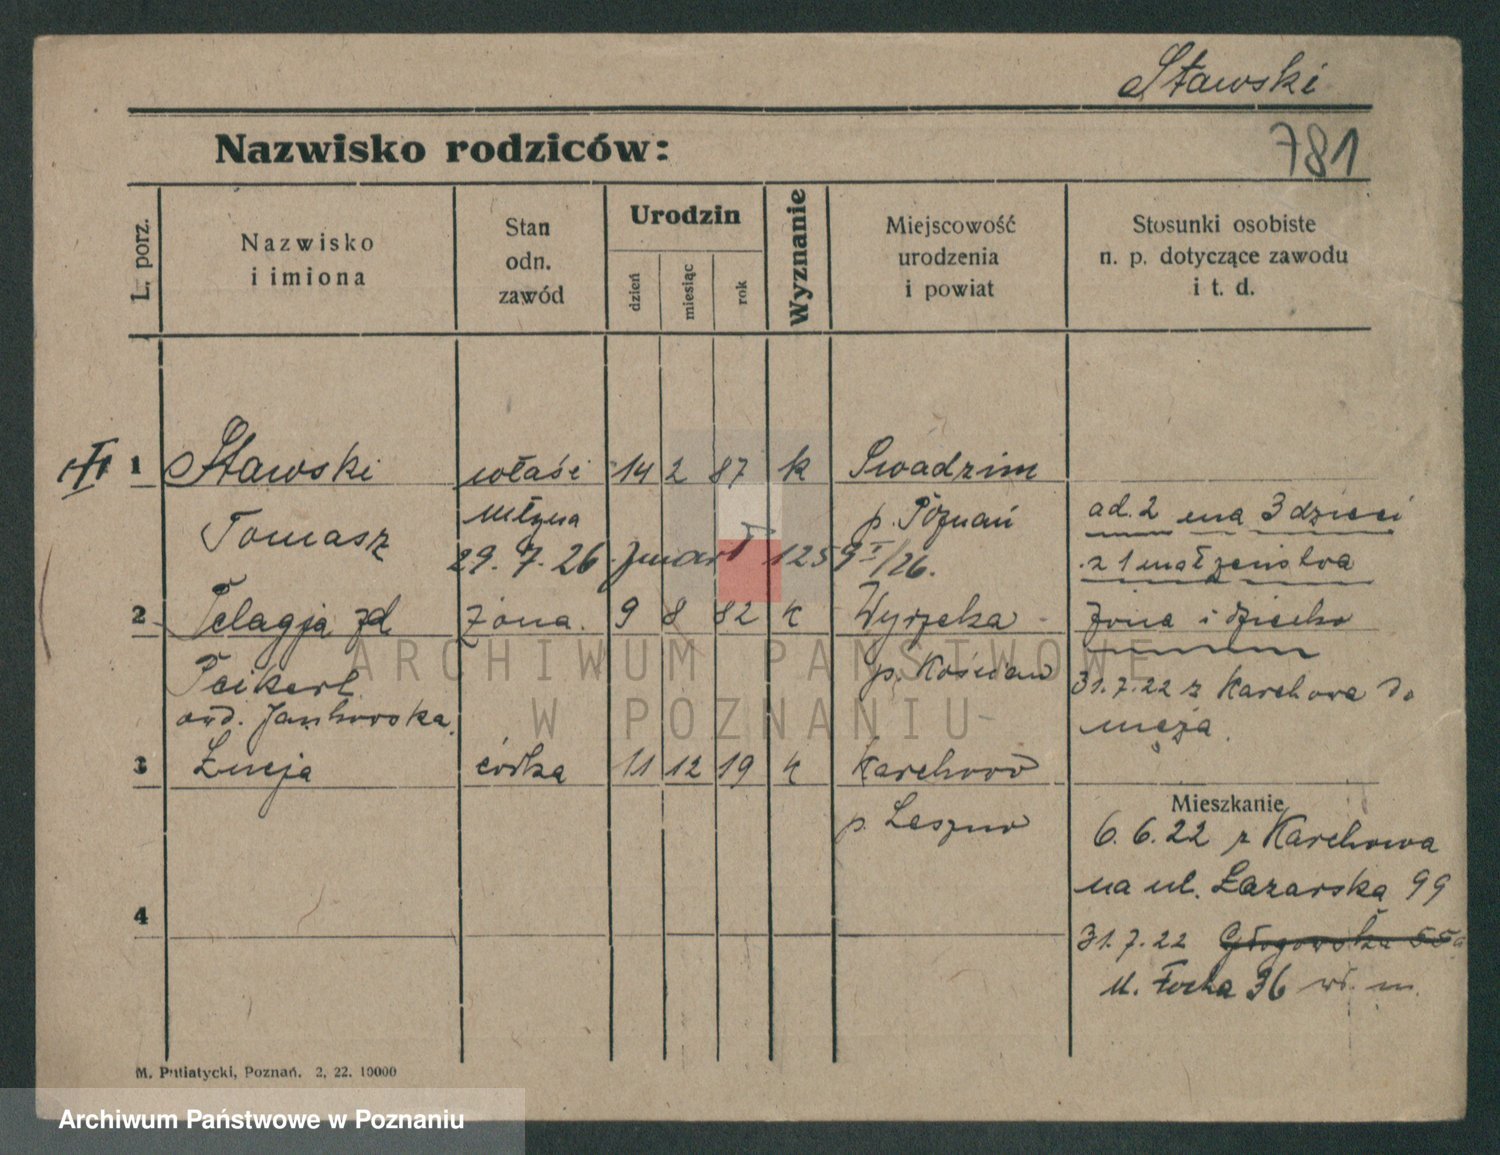 Stawski
781
Nazwisko rodziców:
L. porz.
Nazwisko
i imiona
Stan
odn.
zawód
Urodzin
dzień
miesiąc
rok
Wyznanie
Miejscowość
urodzenia
i powiat
Stosunki osobiste
n. p. dotyczące zawodu
i t. d.
1 Stawski właści 14 2 87 k Swadzim
Tomasz młyna p. Poznań
29. 7. 26 zmarł 1259 I/26.
ad. 2 ma 3 dzieci
z 1 małżeństwa
2 Pelagja zd żona. 9 8 82 k Wyrzeka
Peikert p. Kościan
owd. Jankowska
żona i dziecko
31.7.22 z Karchowa do
męża.
3 Łucja córka 11 12 19 k Karchowo
p. Leszno
4
Mieszkanie
6.6.22 z Karchowa
na ul. Łazarska 99
31.7.22 Głogowska 55a
ul. Focha 36 wł. m.
M. Putiatycki, Poznań. 2, 22. 10000
ARCHIWUM PAŃSTWOWE
W POZNANIU
Archiwum Państwowe w Poznaniu